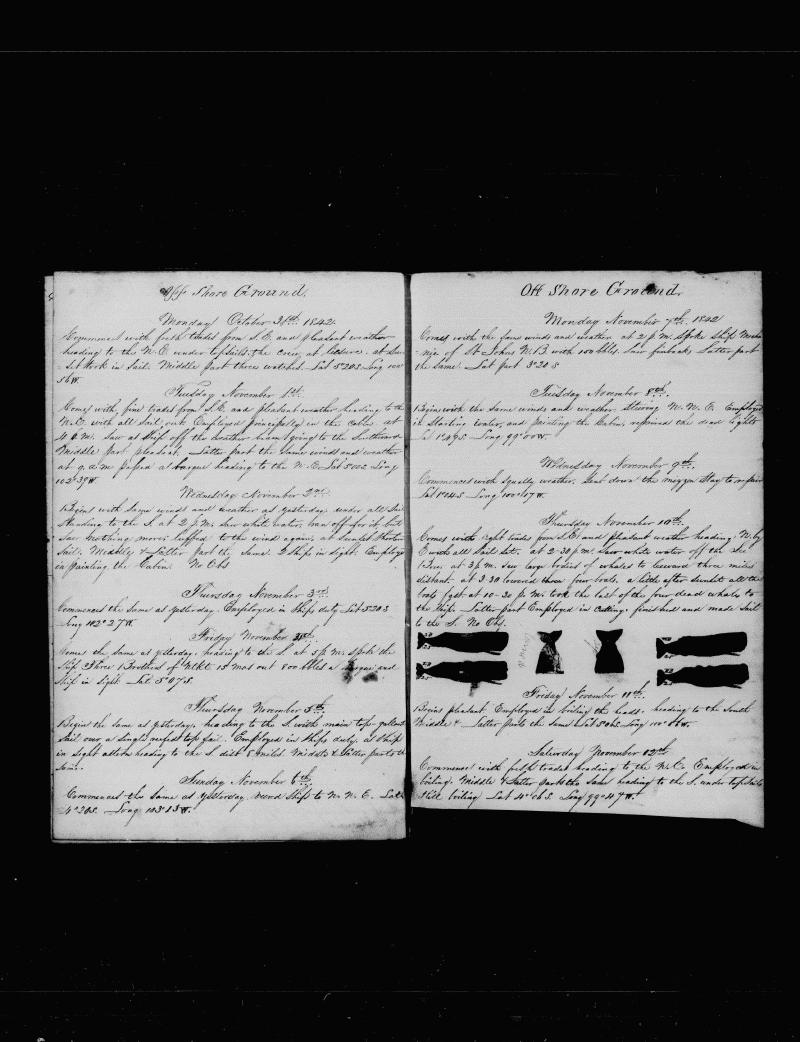 Off Shore Ground.
Monday October 31st. 1842.
Commences with fresh trades from S.E. and pleasant weather
heading to the N.E. under topsails. the crew at leisure. at Sun
set work in Sail. Middle Part three watches. Lat 5°20S Long 100°
56W.
Tuesday November 1st.
Comes with fine trades from S.E. and pleasant weather heading to the
N.E. with all sail out. Employed principally in the Cabin at
4 P.M. Saw a Ship off the weather beam going to the Southward
Middle part pleasant. Latter part the same winds and weather
at 9. a.m passed a barque heading to the N.E. Lat 5°00S Long
102°39W
Wednesday November 2nd.
Begins with same winds and weather as yesterday under all Sail
Standing to the S. at 2 p.m. Saw white water, ran off for it but
Saw nothing more luffed to the wind again, at Sunset Shorten
Sail. Middle & Latter part the Same. 2 Ships in Sight. Employed
in painting the Cabin. No Obs
Thursday November 3rd.
Commences the Same as yesterday. Employed in Ships duty Lat 5°20S
Long 102°27W.
Friday November
Comes the Same as yesterday. heading to the S. at 5 p.m. Spoke the
Ship Three Brothers of Ntkt. 15 mos out 800 bbls a barque and
Ship in Sight. Lat 5°07S.
Thursday November 5th.
Begins the Same as yesterday. heading to the S. with main top-gallant
Sail over a Single reefed topsail. Employed in Ships duty. a Ship
in Sight astern heading to the S. dist 8 miles Middle & Latter parts the
Same.
Sunday November 6th.
Commences the Same as yesterday. Ship to N.N.E. Lat
4°20S. Long 103°53W.
Off Shore Ground.
Monday November 7th. 1842
Comes with the Same winds and weather at 2 p.m. Spoke Ship Mecha
nic of St Johns N.B. with 100 bbls. Saw finbacks Latter part
the same. Lat part 3°20S
Tuesday November 8th.
Begins with the Same winds and weather. Steering N.N.E. Employed
in Starting water, and painting the Cabin, repaired the dead lights
Lat 1°49S. Long 99°00W.
Wednesday November 9th.
Commences with Squally weather. Sent down the mizzen Stay to repair
Lat 1°04S. Long 100°07W.
Thursday November 10th.
Comes with light trades from S.E. and pleasant weather heading N. by
E with all Sail Set. at 2-30 p.m. Saw white water off the lee
Bow. at 3 p.m. Saw large bodies of whales to leeward three miles
distant. at 3 30 lowered three four boats, a little after Sunset all the
boats fast at 10-30 p.m. took the last of the four dead whales to
the Ship. Latter part Employed in Cutting. finished and made Sail
to the S. No Obs.
Friday November 11th.
Begins pleasant. Employed in boiling the heads. heading to the South
Middle & Latter parts the Same Lat 3°06S. Long 100°W.
Saturday November 12th
Commences with fresh trades heading to the N.E. Employed in
boiling. Middle & Latter parts the Same heading to the S. under topsails
Still boiling Lat 4°06S. Long 99°47W.